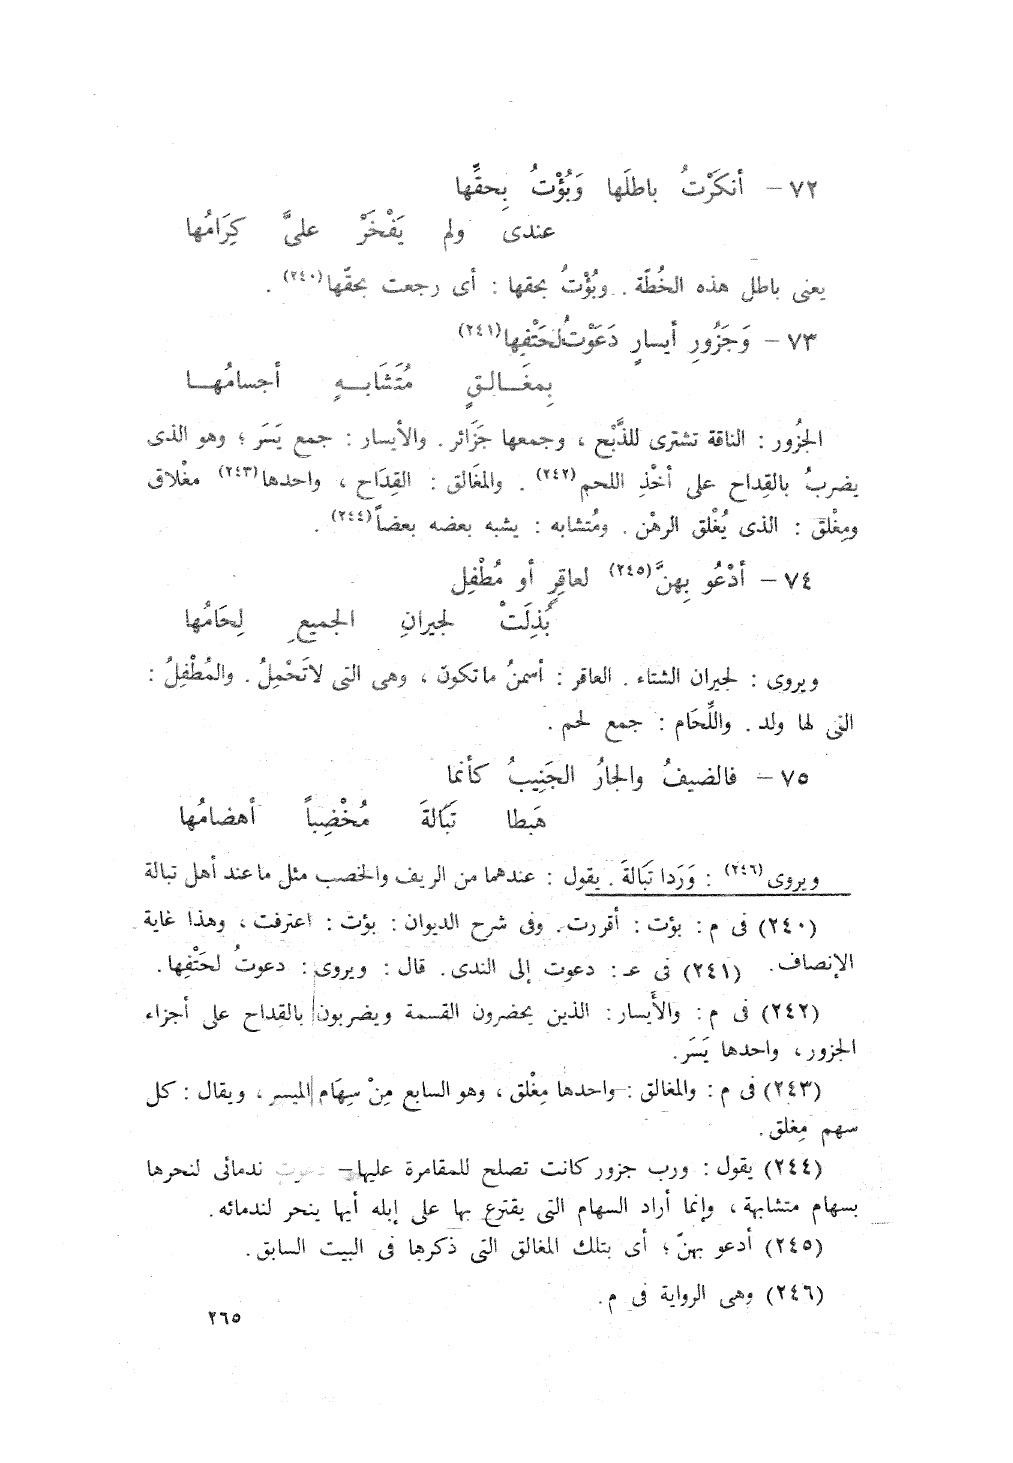 ٧٢ – أنكَرْتُ باطلَها وَبُؤْتُ بِحقِّها
عندى ولم يَفْخَرْ علىَّ كِرَامُها
يعنى باطل هذه الخُطّة . وبُؤْتُ بحقها : أى رجعت بحقّها(٢٤٠) .
٧٣ – وَجَزُورِ أيسارٍ دَعَوْتُ لحَتْفِها(٢٤١)
بِمغَــالــقٍ مُتَشَابــهٍ أجسامُهــا
الجزُور : الناقة تشترى للذَّبْح ، وجمعها جَزَائر . والأيسار : جمع يَسَر ؛ وهو الذى
يضربُ بالقِداح على أخْذِ اللحم(٢٤٢) . والمغَالق : القِدَاح ، واحدها(٢٤٣) مغْلاق
ومِغْلق : الذى يُغْلق الرهْن . ومُتشابه : يشبه بعضه بعضاً(٢٤٤) .
٧٤ – أدْعُو بِهنَّ(٢٤٥) لعاقرٍ أو مُطْفِل
بُذِلَتْ لجيرانِ الجميعِ لِحَامُها
ويروى : لجيران الشتاء . العاقر : أسمنُ ماتكون ، وهى التى لاتَحْمِلُ . والمُطْفِلُ :
التى لها ولد . واللِّحَام : جمع لحم .
٧٥ – فالضيفُ والجارُ الجَنِيبُ كأنما
هَبطا تَبَالةَ مُخْضِباً أهضامُها
ويروى(٢٤٦) : وَرَدا تبَالةَ . يقول : عندهما من الريف والخصب مثل ماعند أهل تبالة
(٢٤٠) فى م : بؤت : أقررت. وفى شرح الديوان : بؤت : اعترفت ، وهذا غاية
الإنصاف. (٢٤١) فى عـ : دعوت إلى الندى. قال : ويروى : دعوتُ لحَتْفِها.
(٢٤٢) فى م : والأَيسار : الذين يحضرون القسمة ويضربون بالقِداح على أجزاء
الجزور ، واحدها يَسَر.
(٢٤٣) فى م : والمغالق : واحدها مِغْلق ، وهو السابع مِنْ سِهَام الميسر ، ويقال : كل
سهم مِغلق.
(٢٤٤) يقول : ورب جزور كانت تصلح للمقامرة عليها – دعوت ندمائى لنحرها
بسهام متشابهة ، وإنما أراد السهام التى يقترع بها على إبله أيها ينحر لندمائه.
(٢٤٥) أدعو بهنّ ؛ أى بتلك المغالق التى ذكرها فى البيت السابق.
(٢٤٦) وهى الرواية فى م.
٢٦٥